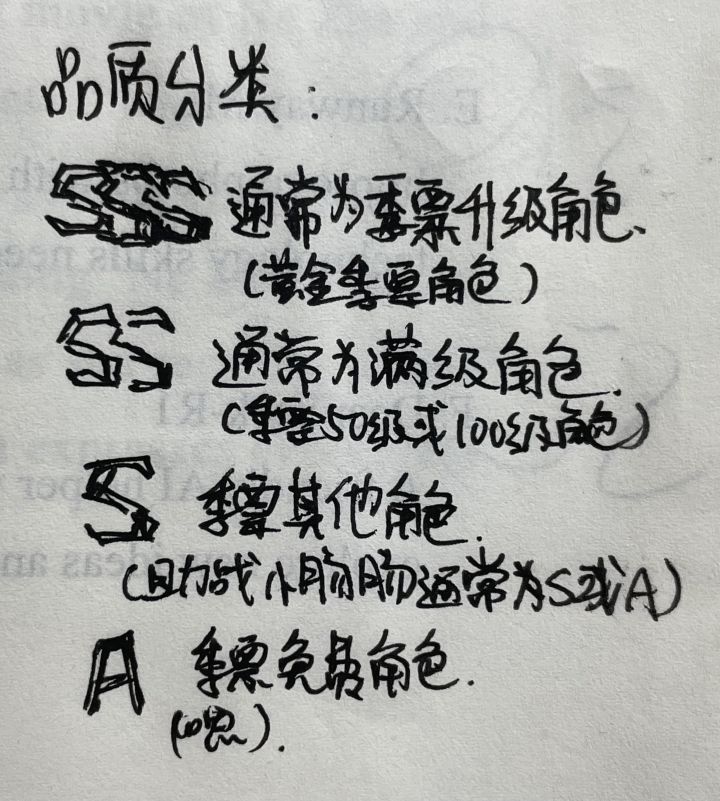 品质分类:
SSS 通常为季票升级角色.
(黄金季票角色)
SS 通常为满级角色.
(季票50级或100级角色)
S 季票其他角色.
(助战小肠肠通常为S或A)
A 季票免费角色.
E. Runway
skills need
R1
ideas an